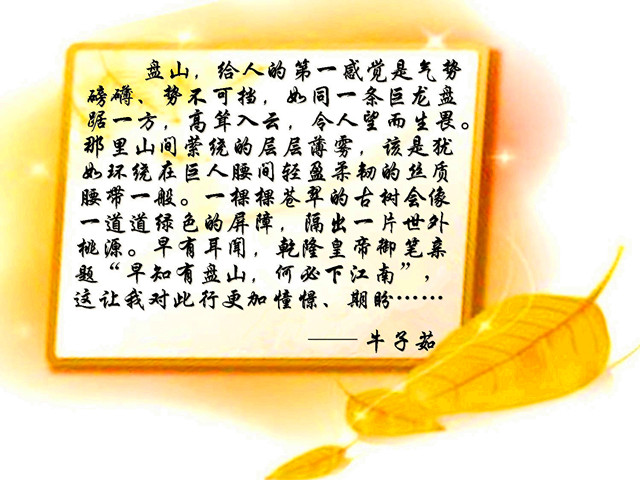 盘山，给人的第一感觉是气势
磅礴、势不可挡，如同一条巨龙盘
踞一方，高耸入云，令人望而生畏。
那里山间萦绕的层层薄雾，该是犹
如环绕在巨人腰间轻盈柔韧的丝质
腰带一般。一棵棵苍翠的古树会像
一道道绿色的屏障，隔出一片世外
桃源。早有耳闻，乾隆皇帝御笔亲
题“早知有盘山，何必下江南”，
这让我对此行更加憧憬、期盼……
——牛子茹